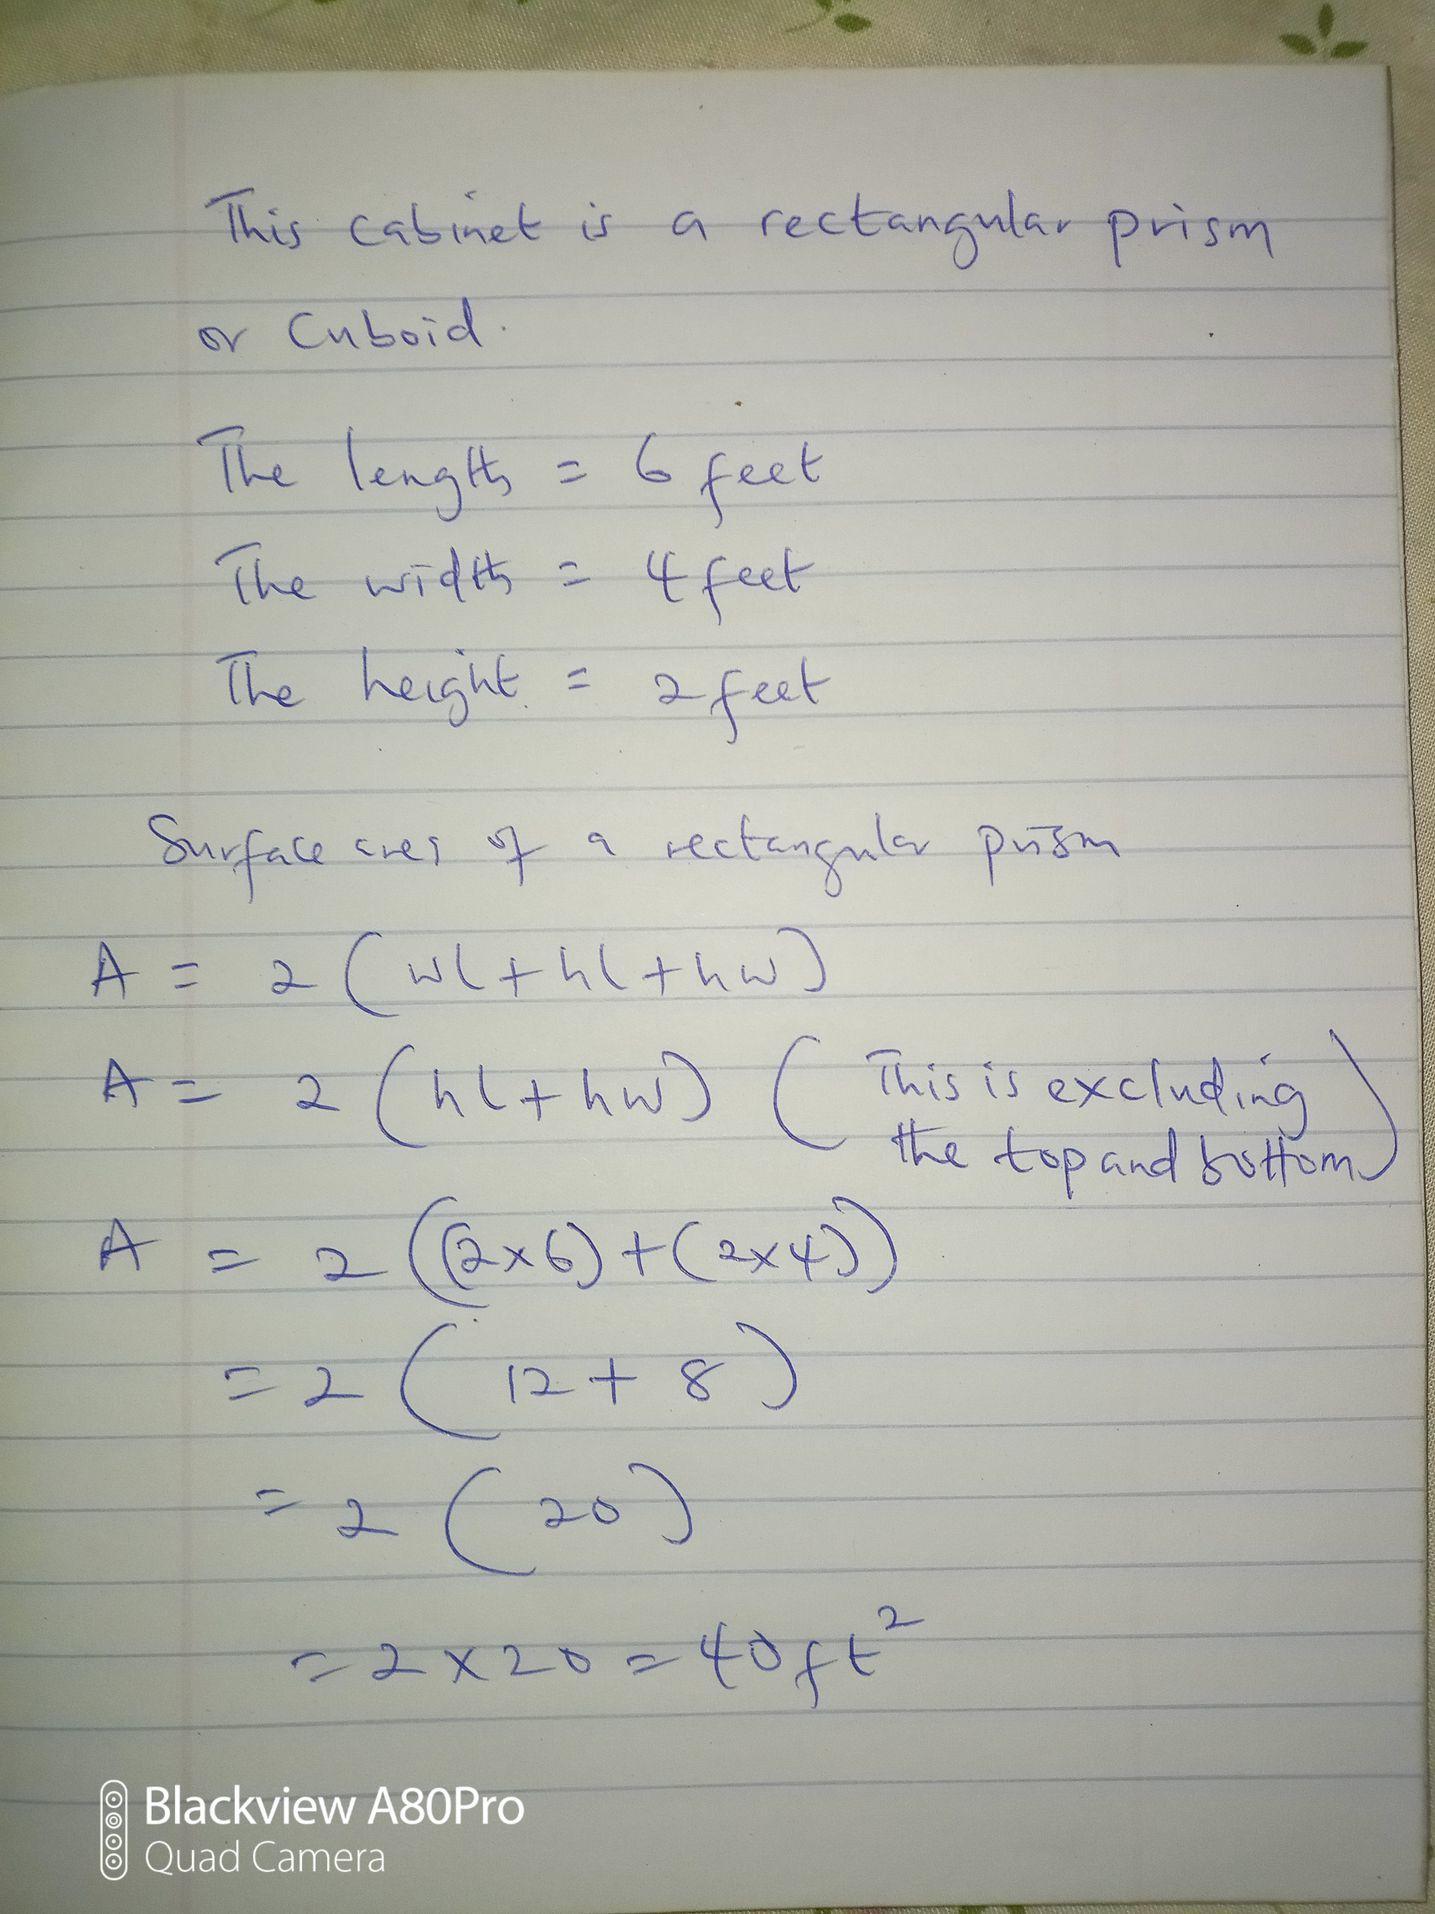 This cabinet is a rectangular prism
or Cuboid.
The length = 6 feet
The width = 4 feet
The height = 2 feet
Surface area of a rectangular prism
A = 2 (wl + hl + hw)
A = 2 (hl + hw) (This is excluding
the top and bottom)
A = 2 ((2x6) + (2x4))
= 2 (12 + 8)
= 2 (20)
= 2 x 20 = 40 ft²
Blackview A80Pro
Quad Camera